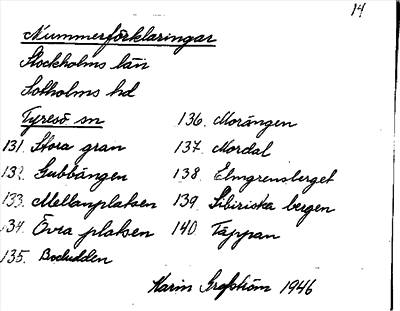 14
Nummerförklaringar
Stockholms län
Sotholms hd
Tyresö sn
131. Stora gran
132. Gubbängen
133. Mellanplatsen
134. Övra platsen
135. Bodudden
136. Morängen
137. Nordal
138. Elmgrensberget
139. Sibiriska bergen
140 Täppan
Karin 1946